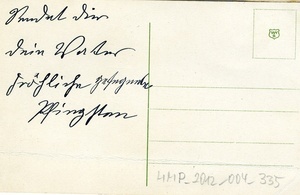 Sendet dir
dein Vater
fröhliche gesegnete
Pfingsten
HMP_2012_004_335